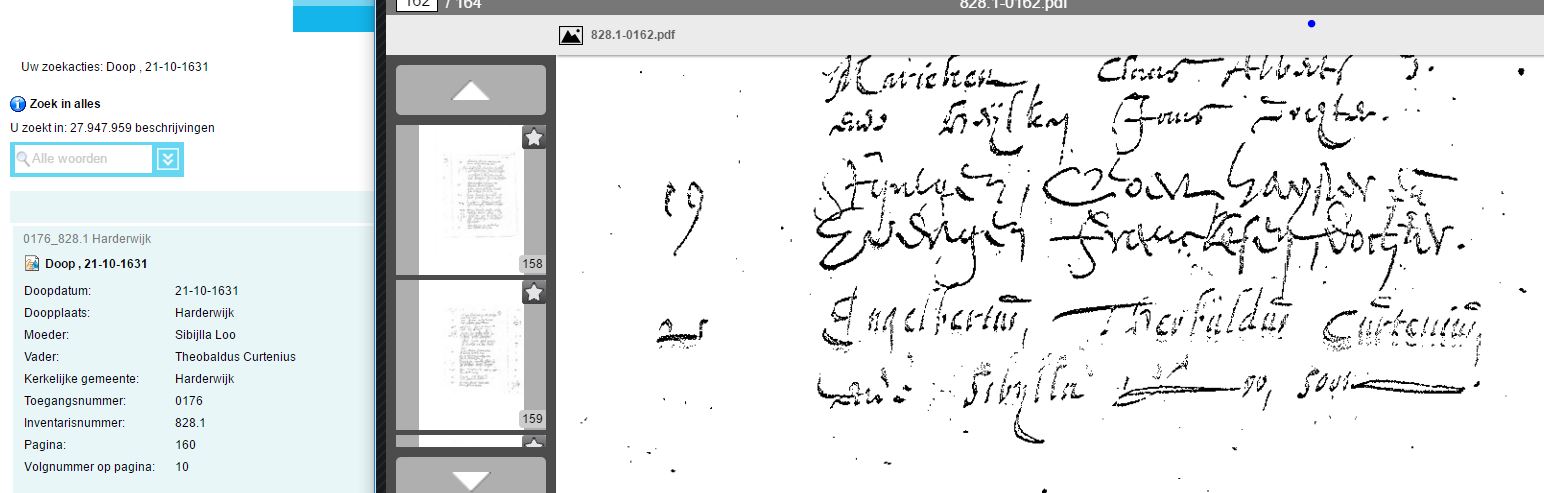 Uw zoekacties: Doop , 21-10-1631
Zoek in alles
U zoekt in: 27.947.959 beschrijvingen
Alle woorden
0176_828.1 Harderwijk
Doop , 21-10-1631
Doopdatum: 21-10-1631
Doopplaats: Harderwijk
Moeder: Sibijlla Loo
Vader: Theobaldus Curtenius
Kerkelijke gemeente: Harderwijk
Toegangsnummer: 0176
Inventarisnummer: 828.1
Pagina: 160
Volgnummer op pagina: 10
162 / 164 828.1-0162.pdf
828.1-0162.pdf
158
159
Claas Albert
19
Engelbertus, Theobaldus Curtenius
Sibylla